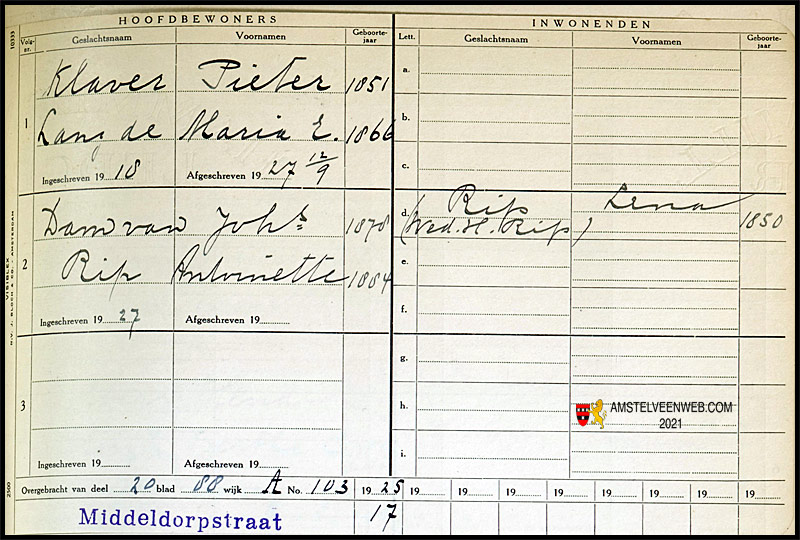 HOOFDBEWONERS
INWONENDEN
10333
Volg-nr.
Geslachtsnaam
Voornamen
Geboorte-jaar
Lett.
Geslachtsnaam
Voornamen
Geboorte-jaar
1
Klaver Pieter 1851
Lang de Maria E. 1866
Ingeschreven 19 18
Afgeschreven 19 27 12/9
a.
b.
c.
2
Dam van Johs 1878
Rip Antoinette 1884
Ingeschreven 19 27
Afgeschreven 19
d. Rip Lena 1850
(Wed. H. Rip)
e.
f.
3
Ingeschreven 19
Afgeschreven 19
g.
h.
i.
AMSTELVEENWEB.COM
2021
2500
Overgebracht van deel 20 blad 88 wijk A No. 103 19 25 19 19 19 19 19 19 19 19
Middeldorpstraat 17